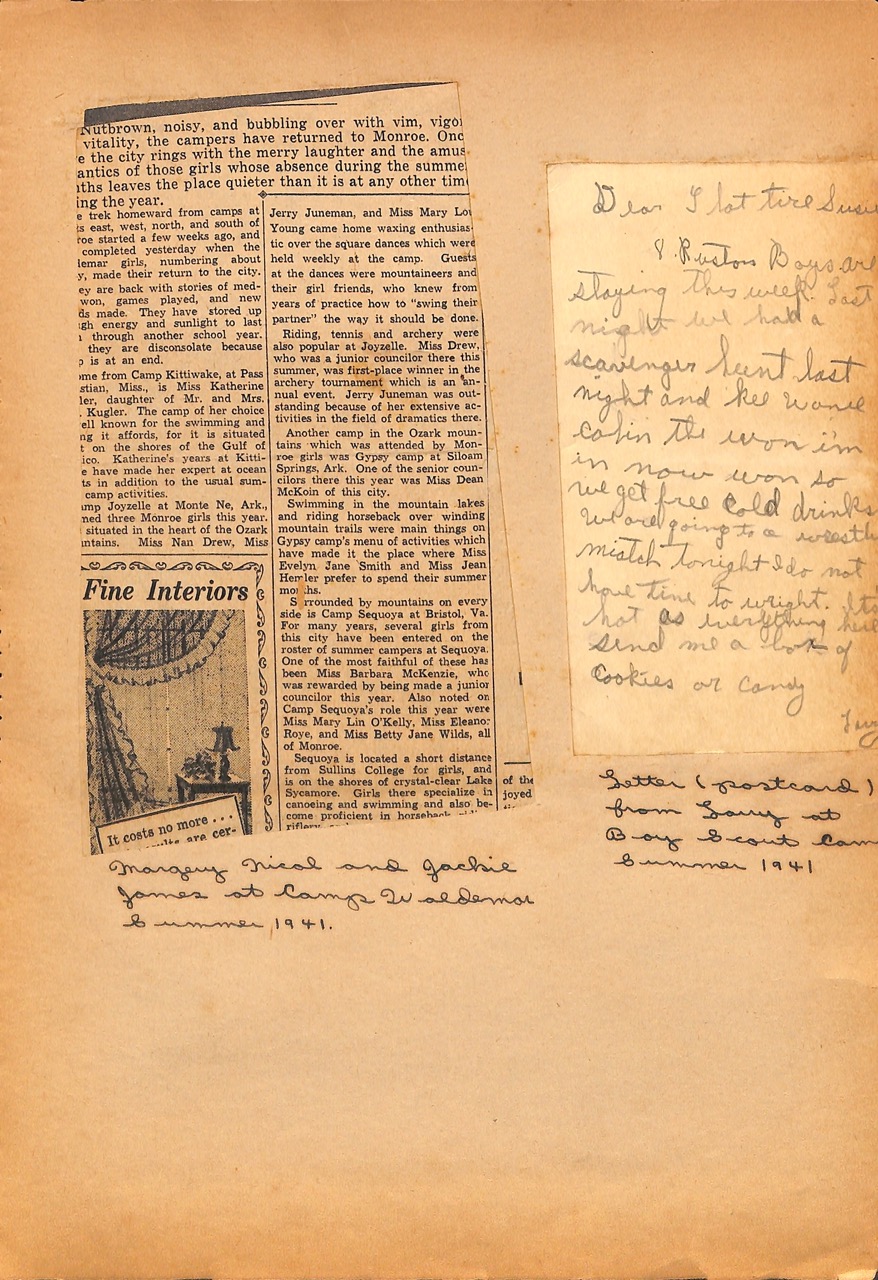 Nutbrown, noisy, and bubbling over with vim, vigo
vitality, the campers have returned to Monroe. Onc
e the city rings with the merry laughter and the amus
antics of those girls whose absence during the summe
ths leaves the place quieter than it is at any other tim
ing the year.
e trek homeward from camps at
s east, west, north, and south of
roe started a few weeks ago, and
completed yesterday when the
lemar girls, numbering about
y, made their return to the city.
ey are back with stories of med-
won, games played, and new
ds made. They have stored up
gh energy and sunlight to last
through another school year.
they are disconsolate because
p is at an end.
me from Camp Kittiwake, at Pass
stian, Miss., is Miss Katherine
ler, daughter of Mr. and Mrs.
. Kugler. The camp of her choice
ell known for the swimming and
ng it affords, for it is situated
t on the shores of the Gulf of
ico. Katherine's years at Kitti-
e have made her expert at ocean
ts in addition to the usual sum-
camp activities.
mp Joyzelle at Monte Ne, Ark.,
ned three Monroe girls this year.
situated in the heart of the Ozark
ntains. Miss Nan Drew, Miss
Fine Interiors
It costs no more . . .
are cer-
Jerry Juneman, and Miss Mary Lou
Young came home waxing enthusias-
tic over the square dances which were
held weekly at the camp. Guests
at the dances were mountaineers and
their girl friends, who knew from
years of practice how to "swing their
partner" the way it should be done.
Riding, tennis and archery were
also popular at Joyzelle. Miss Drew,
who was a junior councilor there this
summer, was first-place winner in the
archery tournament which is an an-
nual event. Jerry Juneman was out-
standing because of her extensive ac-
tivities in the field of dramatics there.
Another camp in the Ozark moun-
tains which was attended by Mon-
roe girls was Gypsy camp at Siloam
Springs, Ark. One of the senior coun-
cilors there this year was Miss Dean
McKoin of this city.
Swimming in the mountain lakes
and riding horseback over winding
mountain trails were main things on
Gypsy camp's menu of activities which
have made it the place where Miss
Evelyn Jane Smith and Miss Jean
Hemler prefer to spend their summer
mo hs.
S rrounded by mountains on every
side is Camp Sequoya at Bristol, Va.
For many years, several girls from
this city have been entered on the
roster of summer campers at Sequoya.
One of the most faithful of these has
been Miss Barbara McKenzie, who
was rewarded by being made a junior
councilor this year. Also noted on
Camp Sequoya's role this year were
Miss Mary Lin O'Kelly, Miss Eleanor
Roye, and Miss Betty Jane Wilds, all
of Monroe.
Sequoya is located a short distance
from Sullins College for girls, and
is on the shores of crystal-clear Lake
Sycamore. Girls there specialize in
canoeing and swimming and also be-
come proficient in horseback
riflery
of the
joyed
Margery Nicol and Jackie
James at Camp Waldemar
Summer 1941.
Dear Flat tire Susie
8 Ruston Boys are
staying this week. Last
night we had a
scavenger hunt last
night and
cabin the won i'm
in now won so
we get free cold drinks
We are going to a
match tonight I do not
have time to wright. It
hot as everything here
send me a box of
Cookies or Candy
Letter (postcard)
from Larry at
Boy Scout Cam
Summer 1941